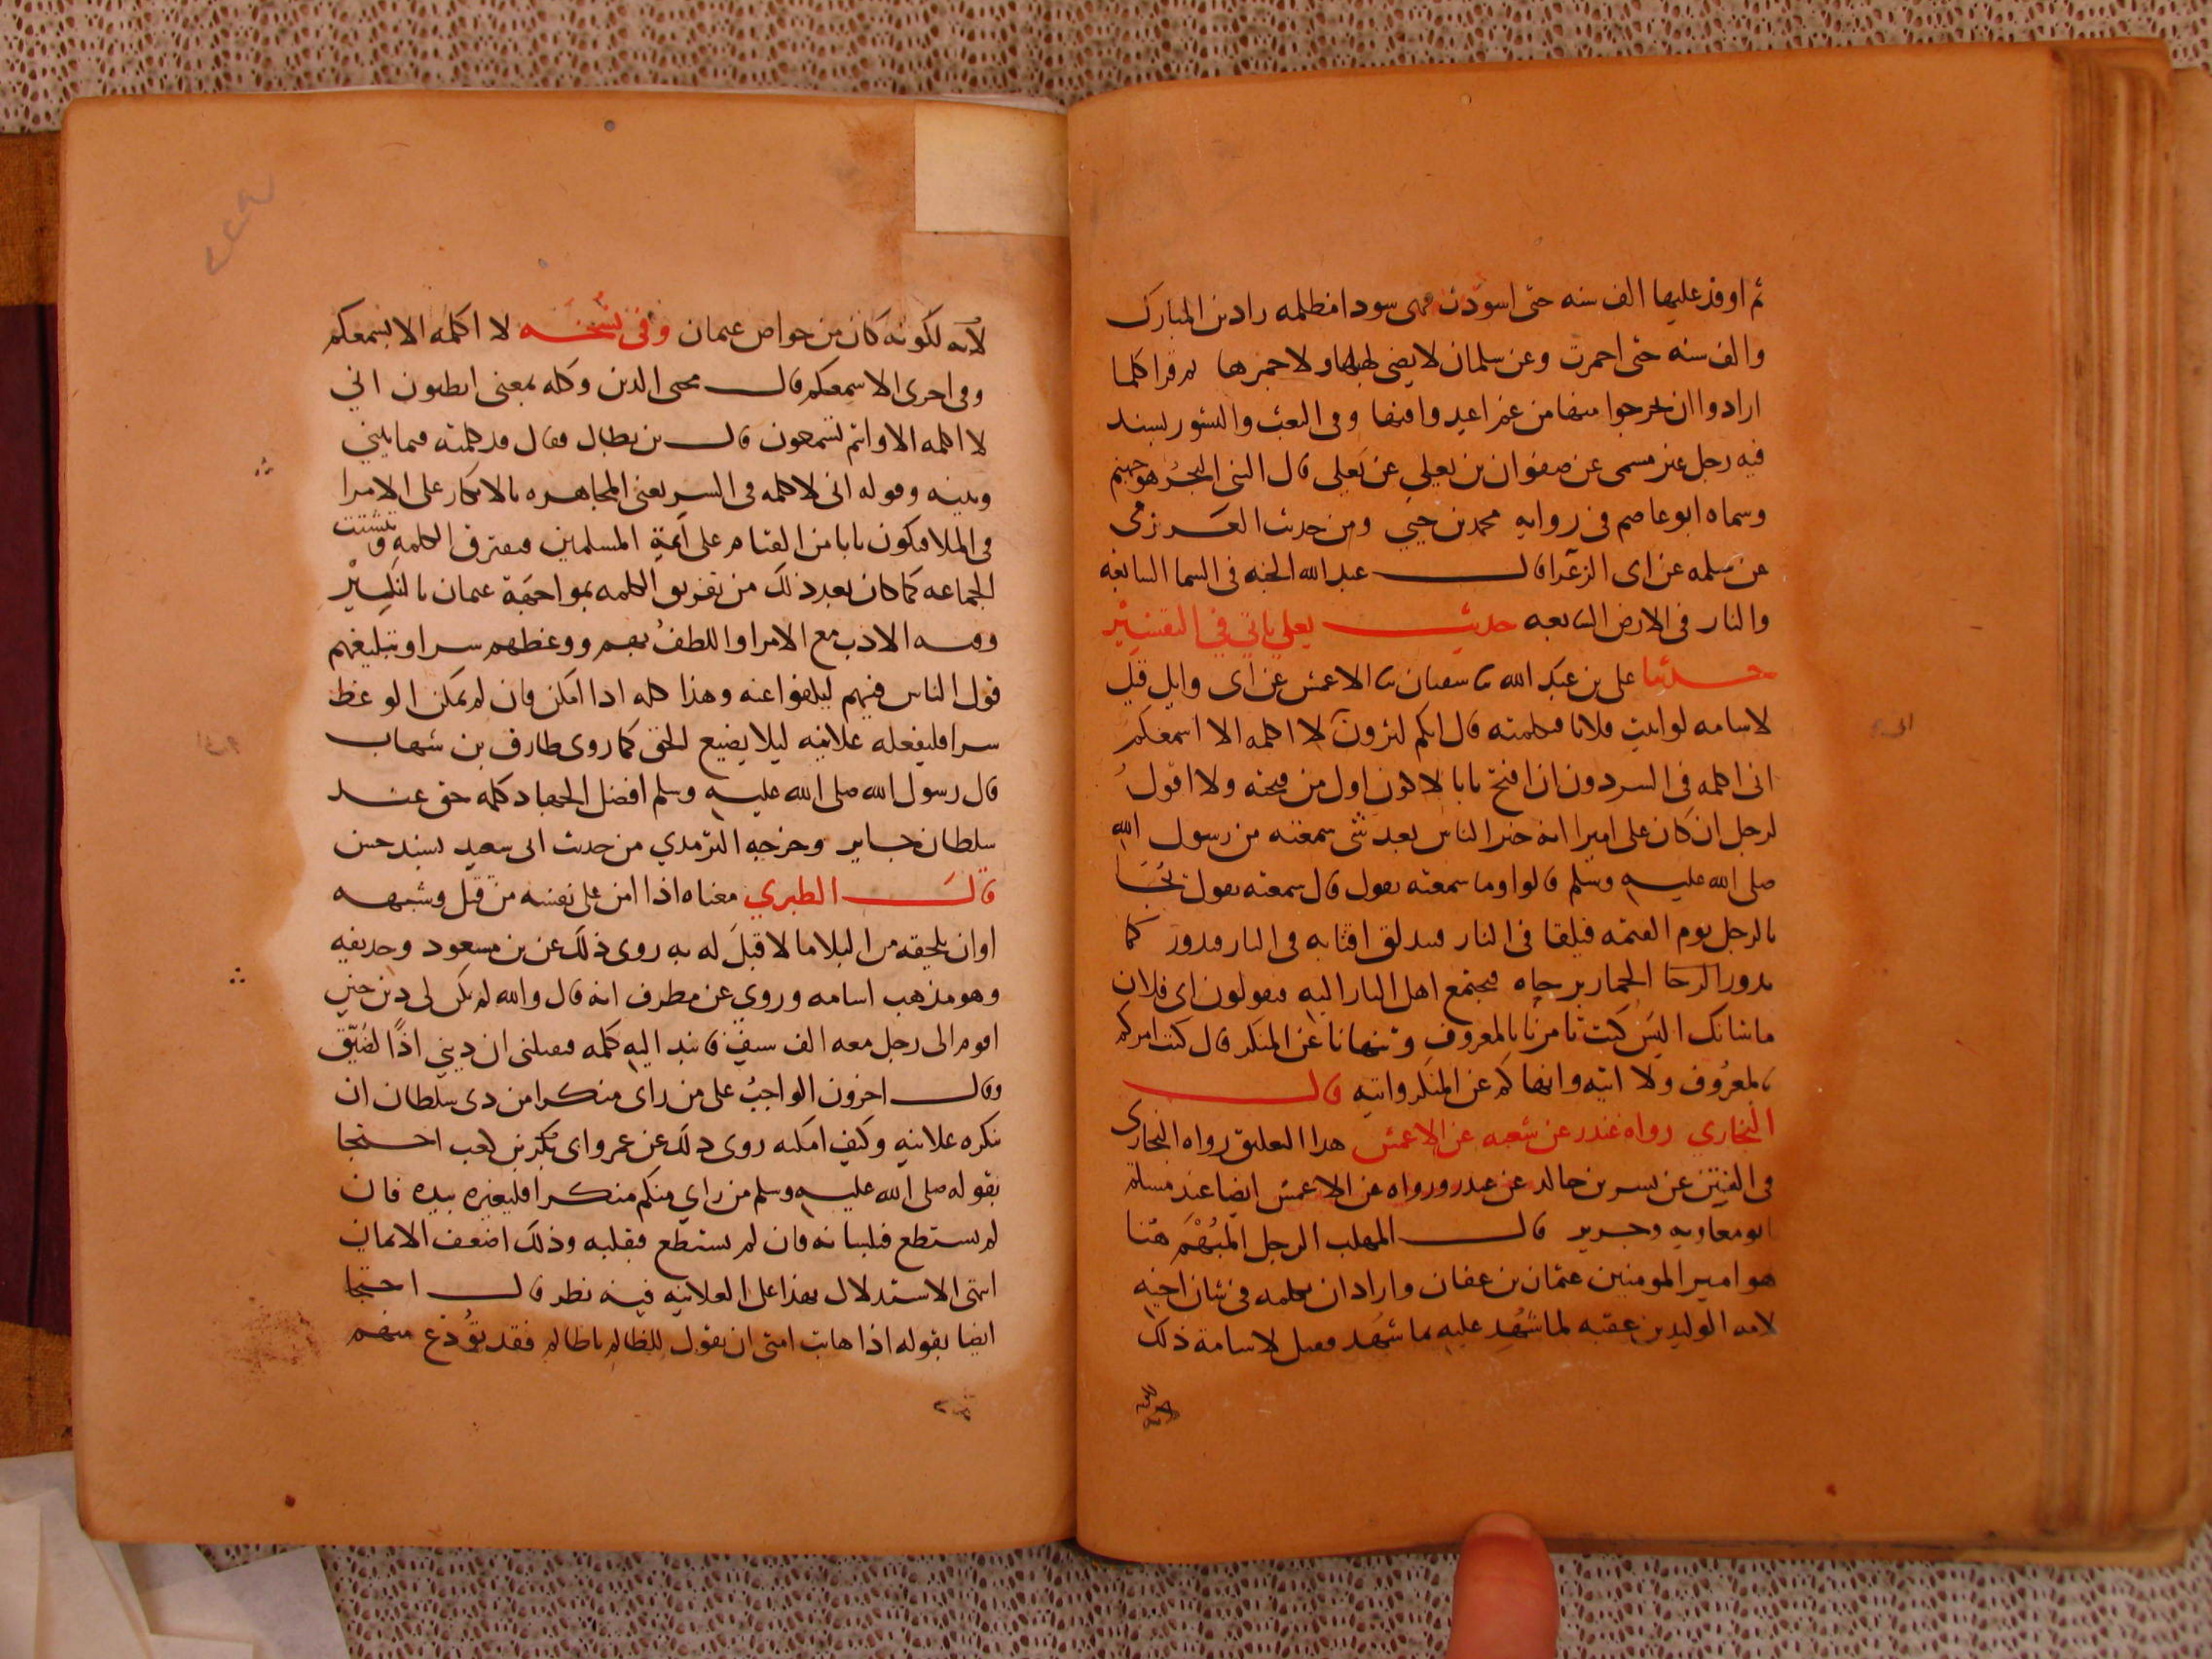 ثم اوقد عليها الف سنه حتى اسودت فهى سودا مظلمه زاد بن المبارك
والف سنه حتى احمرت وعن سلمان لا يضى لهبها ولا جمرها ثم قرا كلما
ارادوا ان يخرجوا منها من غم اعيدوا فيها وفى البعث والنشور بسند
فيه رجل غير مسمى عن صفوان بن يعلى عن يعلى قال النبى البحر هو جهنم
وسماه ابو عاصم فى روايه محمد بن حيي ومن حديث العرزمى
عن سلمه عن ابى الزعرا قال عبد الله الجنه فى السما السابعه
والنار فى الارض السابعه حديث يعلي ياتي في التفسير
حدثنا على بن عبد الله نا سفيان نا الاعمش عن ابى وايل قيل
لاسامه لو اتيت فلانا فكلمته قال انكم لترون لا اكلمه الا اسمعكم
انى اكلمه فى السر دون ان افتح بابا لا اكون اول من فتحه ولا اقول
لرجل ان كان على اميرا انه خير الناس بعد شى سمعته من رسول الله
صلى الله عليه وسلم قالوا وما سمعته يقول قال سمعته يقول يجا
بالرجل يوم القيمه فيلقا فى النار فيندلق اقتابه فى النار فيدور كما
يدور الرحا الحمار برحاه فيجتمع اهل النار اليه فيقولون اى فلان
ما شانك اليس كنت تامرنا بالمعروف وتنهانا عن المنكر قال كنت امركم
بالمعروف ولا اتيه وانهاكم عن المنكر واتيه قال
البخاري رواه غندر عن شعبه عن الاعمش هذا التعليق رواه البخارى
فى الفتن عن بسر بن خالد عن غندر ورواه عن الاعمش ايضا عند مسلم
ابو معاويه وجرير قال المهلب الرجل المبهم هنا
هو امير المومنين عثمان بن عفان واراد ان يكلمه فى شان اخيه
لامه الوليد بن عقبه لما شهد عليه بما شهد فقيل لاسامة ذلك
لانه لكونه كان من خواص عثمان وفى نسخه لا اكلمه الا بسمعكم
وفى اخرى الا سمعكم قال محى الدين وكله بمعنى اتظنون انى
لا اكلمه الا وانتم تسمعون قال بن بطال فقال قد كلمته فيما بيني
وبينه وقوله انى لاكلمه فى السر يعنى المجاهره بالانكار على الامرا
فى الملا فيكون بابا من القيام على ايمة المسلمين فيفترق الكلمه وتتشتت
الجماعه كما كان بعد ذلك من تفريق الكلمه بمواجهة عثمان بالنكير
وفيه الادب مع الامرا واللطف بهم ووعظهم سرا وتبليغهم
قول الناس فيهم ليكفوا عنه وهذا كله اذا امكن فان لم يمكن الوعظ
سرا فليفعله علانيه ليلا يضيع الحق كما روى طارق بن شهاب
قال رسول الله صلى الله عليه وسلم افضل الجهاد كلمه حق عند
سلطان جاير وخرجه الترمذي من حديث ابى سعيد بسند حسن
قال الطبري معناه اذا امن على نفسه من قتل وشبهه
او ان يلحقه من البلا ما لا قبل له به روى ذلك عن بن مسعود وحذيفه
وهو مذهب اسامه وروى عن مطرف انه قال والله لو لم يكن لى دين حتى
اقوم الى رجل معه الف سيف فانبذ اليه كلمه فيقتلنى ان دينى اذا لضيق
وقال اخرون الواجب على من راى منكرا من ذى سلطان ان
ينكره علانيه وكيف امكنه روى ذلك عن عمر وابى بن كعب احتجا
بقوله صلى الله عليه وسلم من راي منكم منكرا فليغيره بيده فان
لم يستطع فبلسانه فان لم يستطع فبقلبه وذلك اضعف الايمان
انتهى الاستدلال بهذا على العلانيه فيه نظر قال احتجا
ايضا بقوله اذا هابت امتى ان يقول للظالم يا ظالم فقد تودع منهم